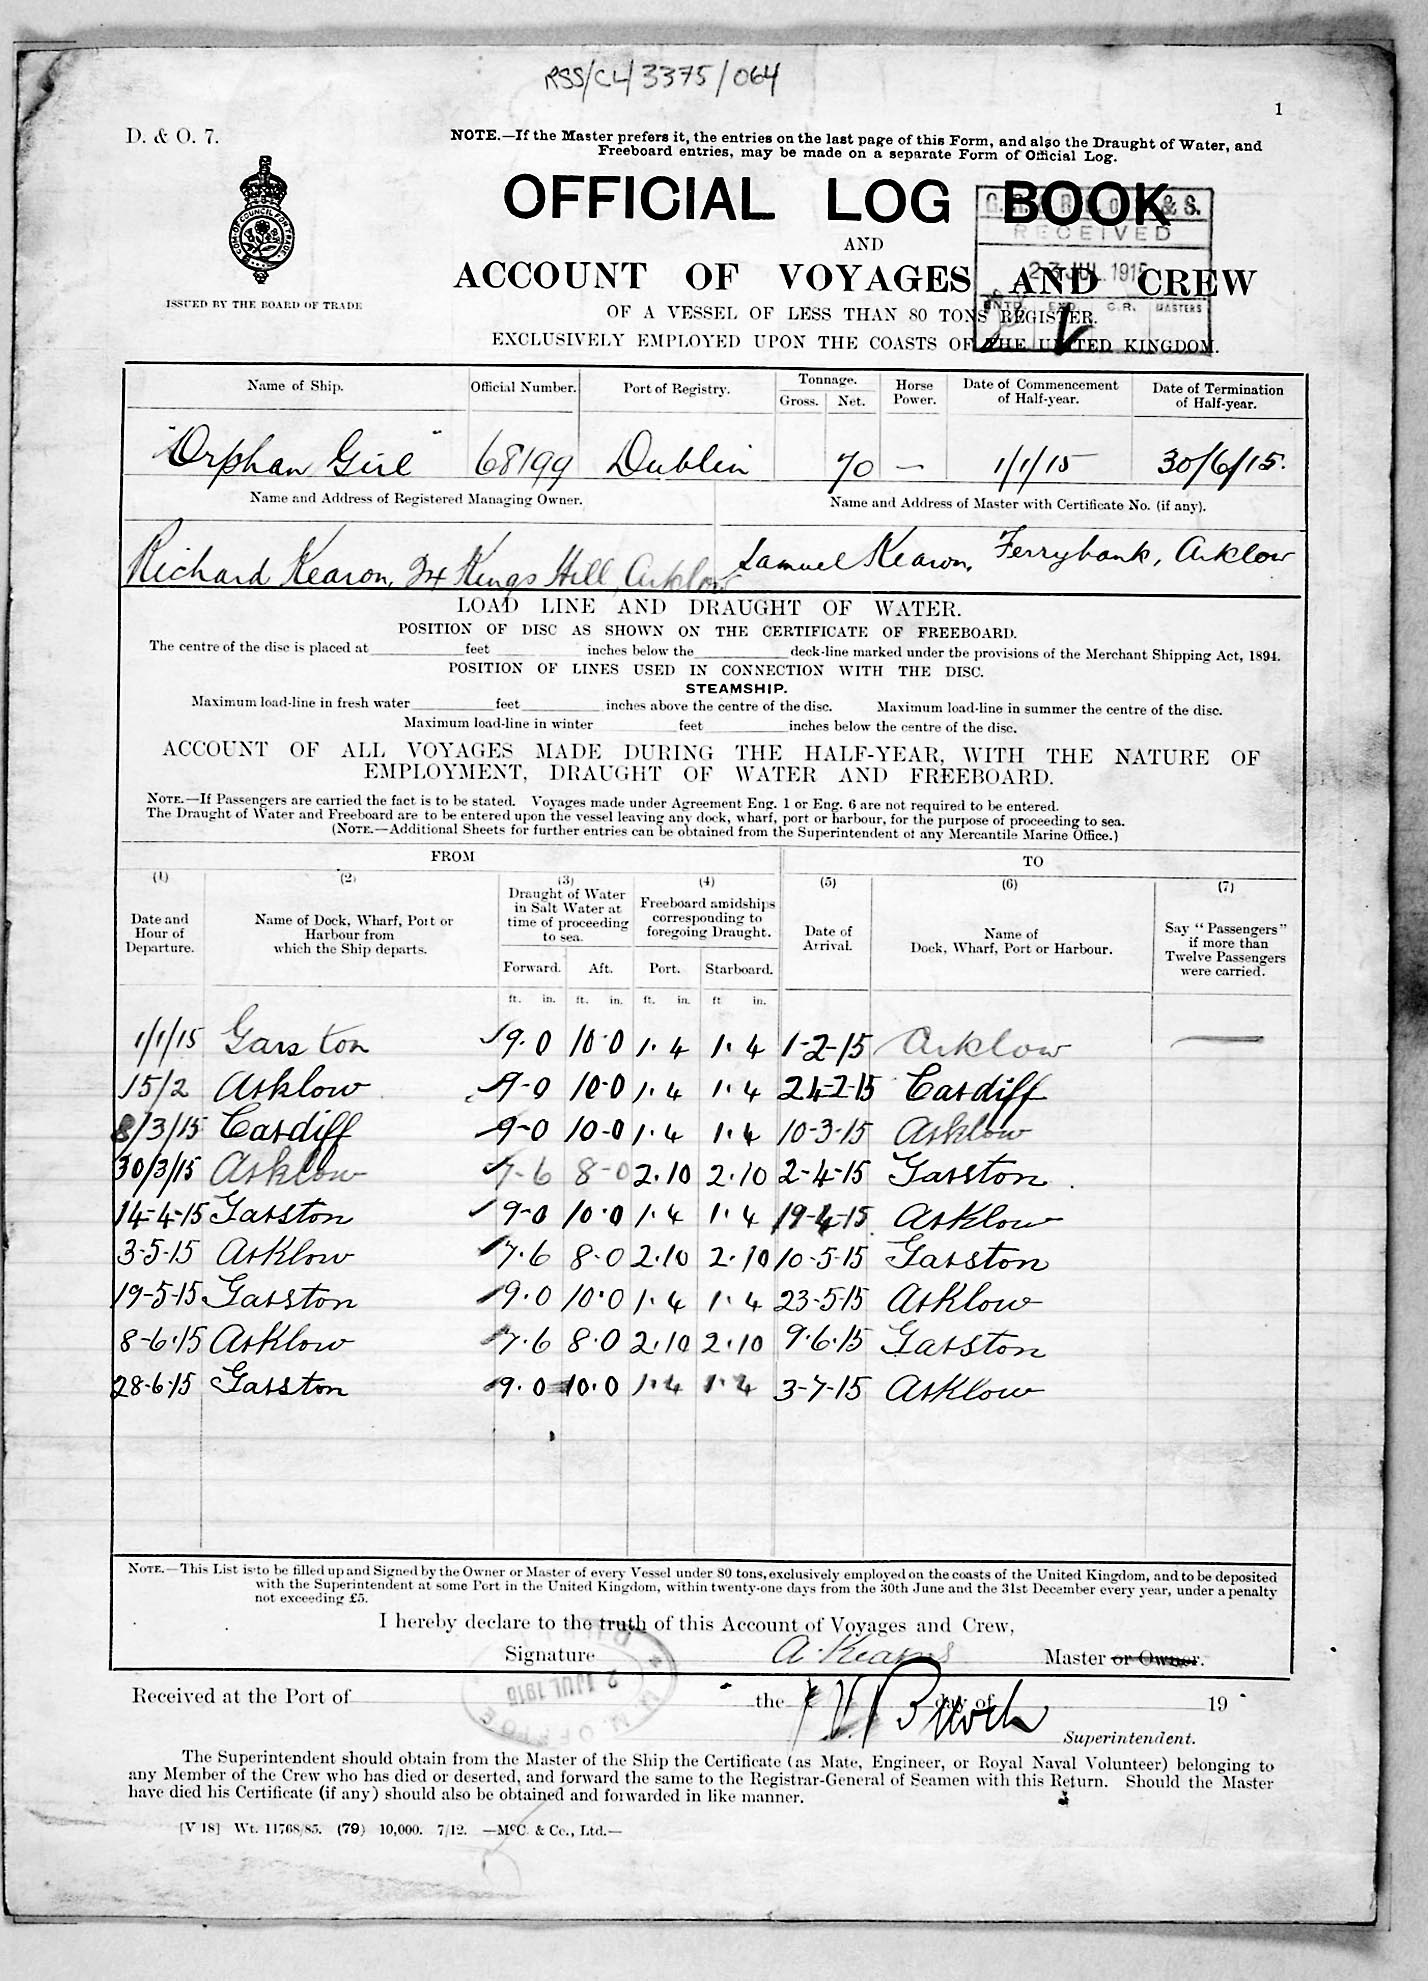 RSS/CL/3375/064
1
D. & O. 7.
NOTE.—If the Master prefers it, the entries on the last page of this Form, and also the Draught of Water, and
Freeboard entries, may be made on a separate Form of Official Log.
OFFICIAL LOG BOOK
AND
ACCOUNT OF VOYAGES AND CREW
OF A VESSEL OF LESS THAN 80 TONS REGISTER.
EXCLUSIVELY EMPLOYED UPON THE COASTS OF THE UNITED KINGDOM.
COM: OF COUNCIL FOR TRADE
ISSUED BY THE BOARD OF TRADE
& S.
RECEIVED
JUL. 191
C.R. MASTERS
Name of Ship. Official Number. Port of Registry. Tonnage. Horse Power. Date of Commencement of Half-year. Date of Termination of Half-year.
Gross. Net.
"Orphan Girl" 68199 Dublin 70 — 1/1/15 30/6/15.
Name and Address of Registered Managing Owner. Name and Address of Master with Certificate No. (if any).
Richard Kearon, Kings Hill, Arklow Samuel Kearon, Ferrybank, Arklow
LOAD LINE AND DRAUGHT OF WATER.
POSITION OF DISC AS SHOWN ON THE CERTIFICATE OF FREEBOARD.
The centre of the disc is placed at feet inches below the deck-line marked under the provisions of the Merchant Shipping Act, 1894.
POSITION OF LINES USED IN CONNECTION WITH THE DISC.
STEAMSHIP.
Maximum load-line in fresh water feet inches above the centre of the disc. Maximum load-line in summer the centre of the disc.
Maximum load-line in winter feet inches below the centre of the disc.
ACCOUNT OF ALL VOYAGES MADE DURING THE HALF-YEAR, WITH THE NATURE OF
EMPLOYMENT, DRAUGHT OF WATER AND FREEBOARD.
NOTE.—If Passengers are carried the fact is to be stated. Voyages made under Agreement Eng. 1 or Eng. 6 are not required to be entered.
The Draught of Water and Freeboard are to be entered upon the vessel leaving any dock, wharf, port or harbour, for the purpose of proceeding to sea.
(NOTE.—Additional Sheets for further entries can be obtained from the Superintendent of any Mercantile Marine Office.)
FROM TO
(1) (2) (3) (4) (5) (6) (7)
Date and Hour of Departure. Name of Dock, Wharf, Port or Harbour from which the Ship departs. Draught of Water in Salt Water at time of proceeding to sea. Freeboard amidships corresponding to foregoing Draught. Date of Arrival. Name of Dock, Wharf, Port or Harbour. Say "Passengers" if more than Twelve Passengers were carried.
Forward. Aft. Port. Starboard.
ft. in. ft. in. ft. in. ft in.
1/1/15 Garston 9.0 10.0 1.4 1.4 1-2-15 Arklow —
15/2 Arklow 9-0 10-0 1.4 1.4 24-2-15 Cardiff
8/3/15 Cardiff 9-0 10-0 1.4 1.4 10-3-15 Arklow
30/3/15 Arklow 7-6 8-0 2.10 2.10 2-4-15 Garston
14-4-15 Garston 9-0 10.0 1.4 1.4 19-4-15 Arklow
3-5-15 Arklow 7.6 8-0 2.10 2.10 10-5-15 Garston
19-5-15 Garston 9.0 10.0 1.4 1.4 23-5-15 Arklow
8-6-15 Arklow 7.6 8.0 2.10 2.10 9.6.15 Garston
28-6-15 Garston 9.0 10.0 1.4 1.4 3-7-15 Arklow
NOTE.—This List is to be filled up and Signed by the Owner or Master of every Vessel under 80 tons, exclusively employed on the coasts of the United Kingdom, and to be deposited
with the Superintendent at some Port in the United Kingdom, within twenty-one days from the 30th June and the 31st December every year, under a penalty
not exceeding £5.
I hereby declare to the truth of this Account of Voyages and Crew,
Signature Master or Owner.
JUL 191
M. M. OFFICE
Received at the Port of the day of 19
Superintendent.
The Superintendent should obtain from the Master of the Ship the Certificate (as Mate, Engineer, or Royal Naval Volunteer) belonging to
any Member of the Crew who has died or deserted, and forward the same to the Registrar-General of Seamen with this Return. Should the Master
have died his Certificate (if any) should also be obtained and forwarded in like manner.
[V 18] Wt. 11768/85. (79) 10,000. 7/12. —McC. & Co., Ltd.—